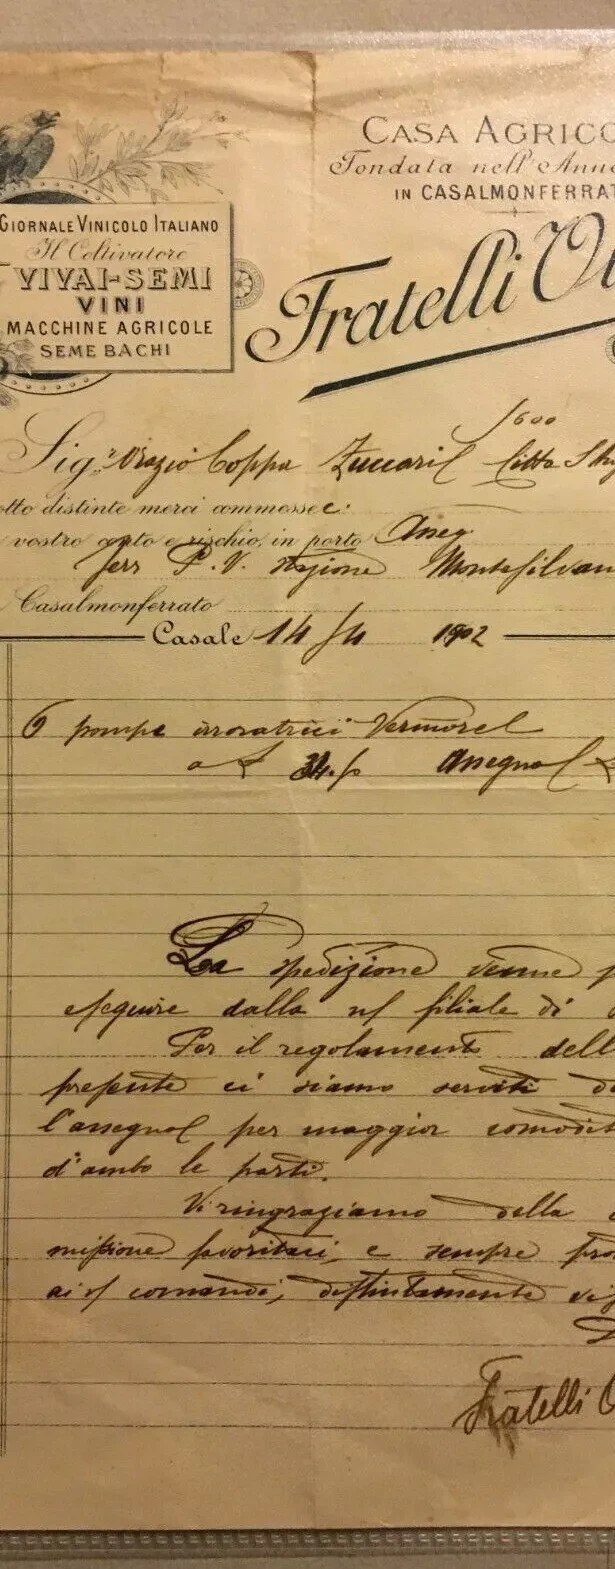 GIORNALE VINICOLO ITALIANO
Il Coltivatore
VIVAI-SEMI
VINI
MACCHINE AGRICOLE
SEME BACHI
CASA AGRICO
Fondata nell'Anno
IN CASALMONFERRAT
Fratelli O
1600
Sig. Orazio Coppa Zuccari Città S
otto distinte merci commesse
vostro conto e rischio, in porto Asseg.
ferr P. V. stazione Montesilvan
Casalmonferrato
Casale 14/4 1902
6 pompe irroratrici Vermorel
a £ 34. assegno £
La spedizione venne
eseguire dalla ns/ filiale di
Per il regolamento dell
presente ci siamo serviti d
l'assegno per maggior comodit
d'ambo le parti.
Vi ringraziamo della
missione favoritaci, e sempre pro
ai s/ comandi, distintamente
Fratelli O